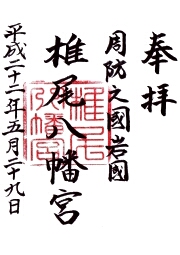 奉拝
周防之國岩國
椎尾八幡宮
平成二十二年五月二十九日